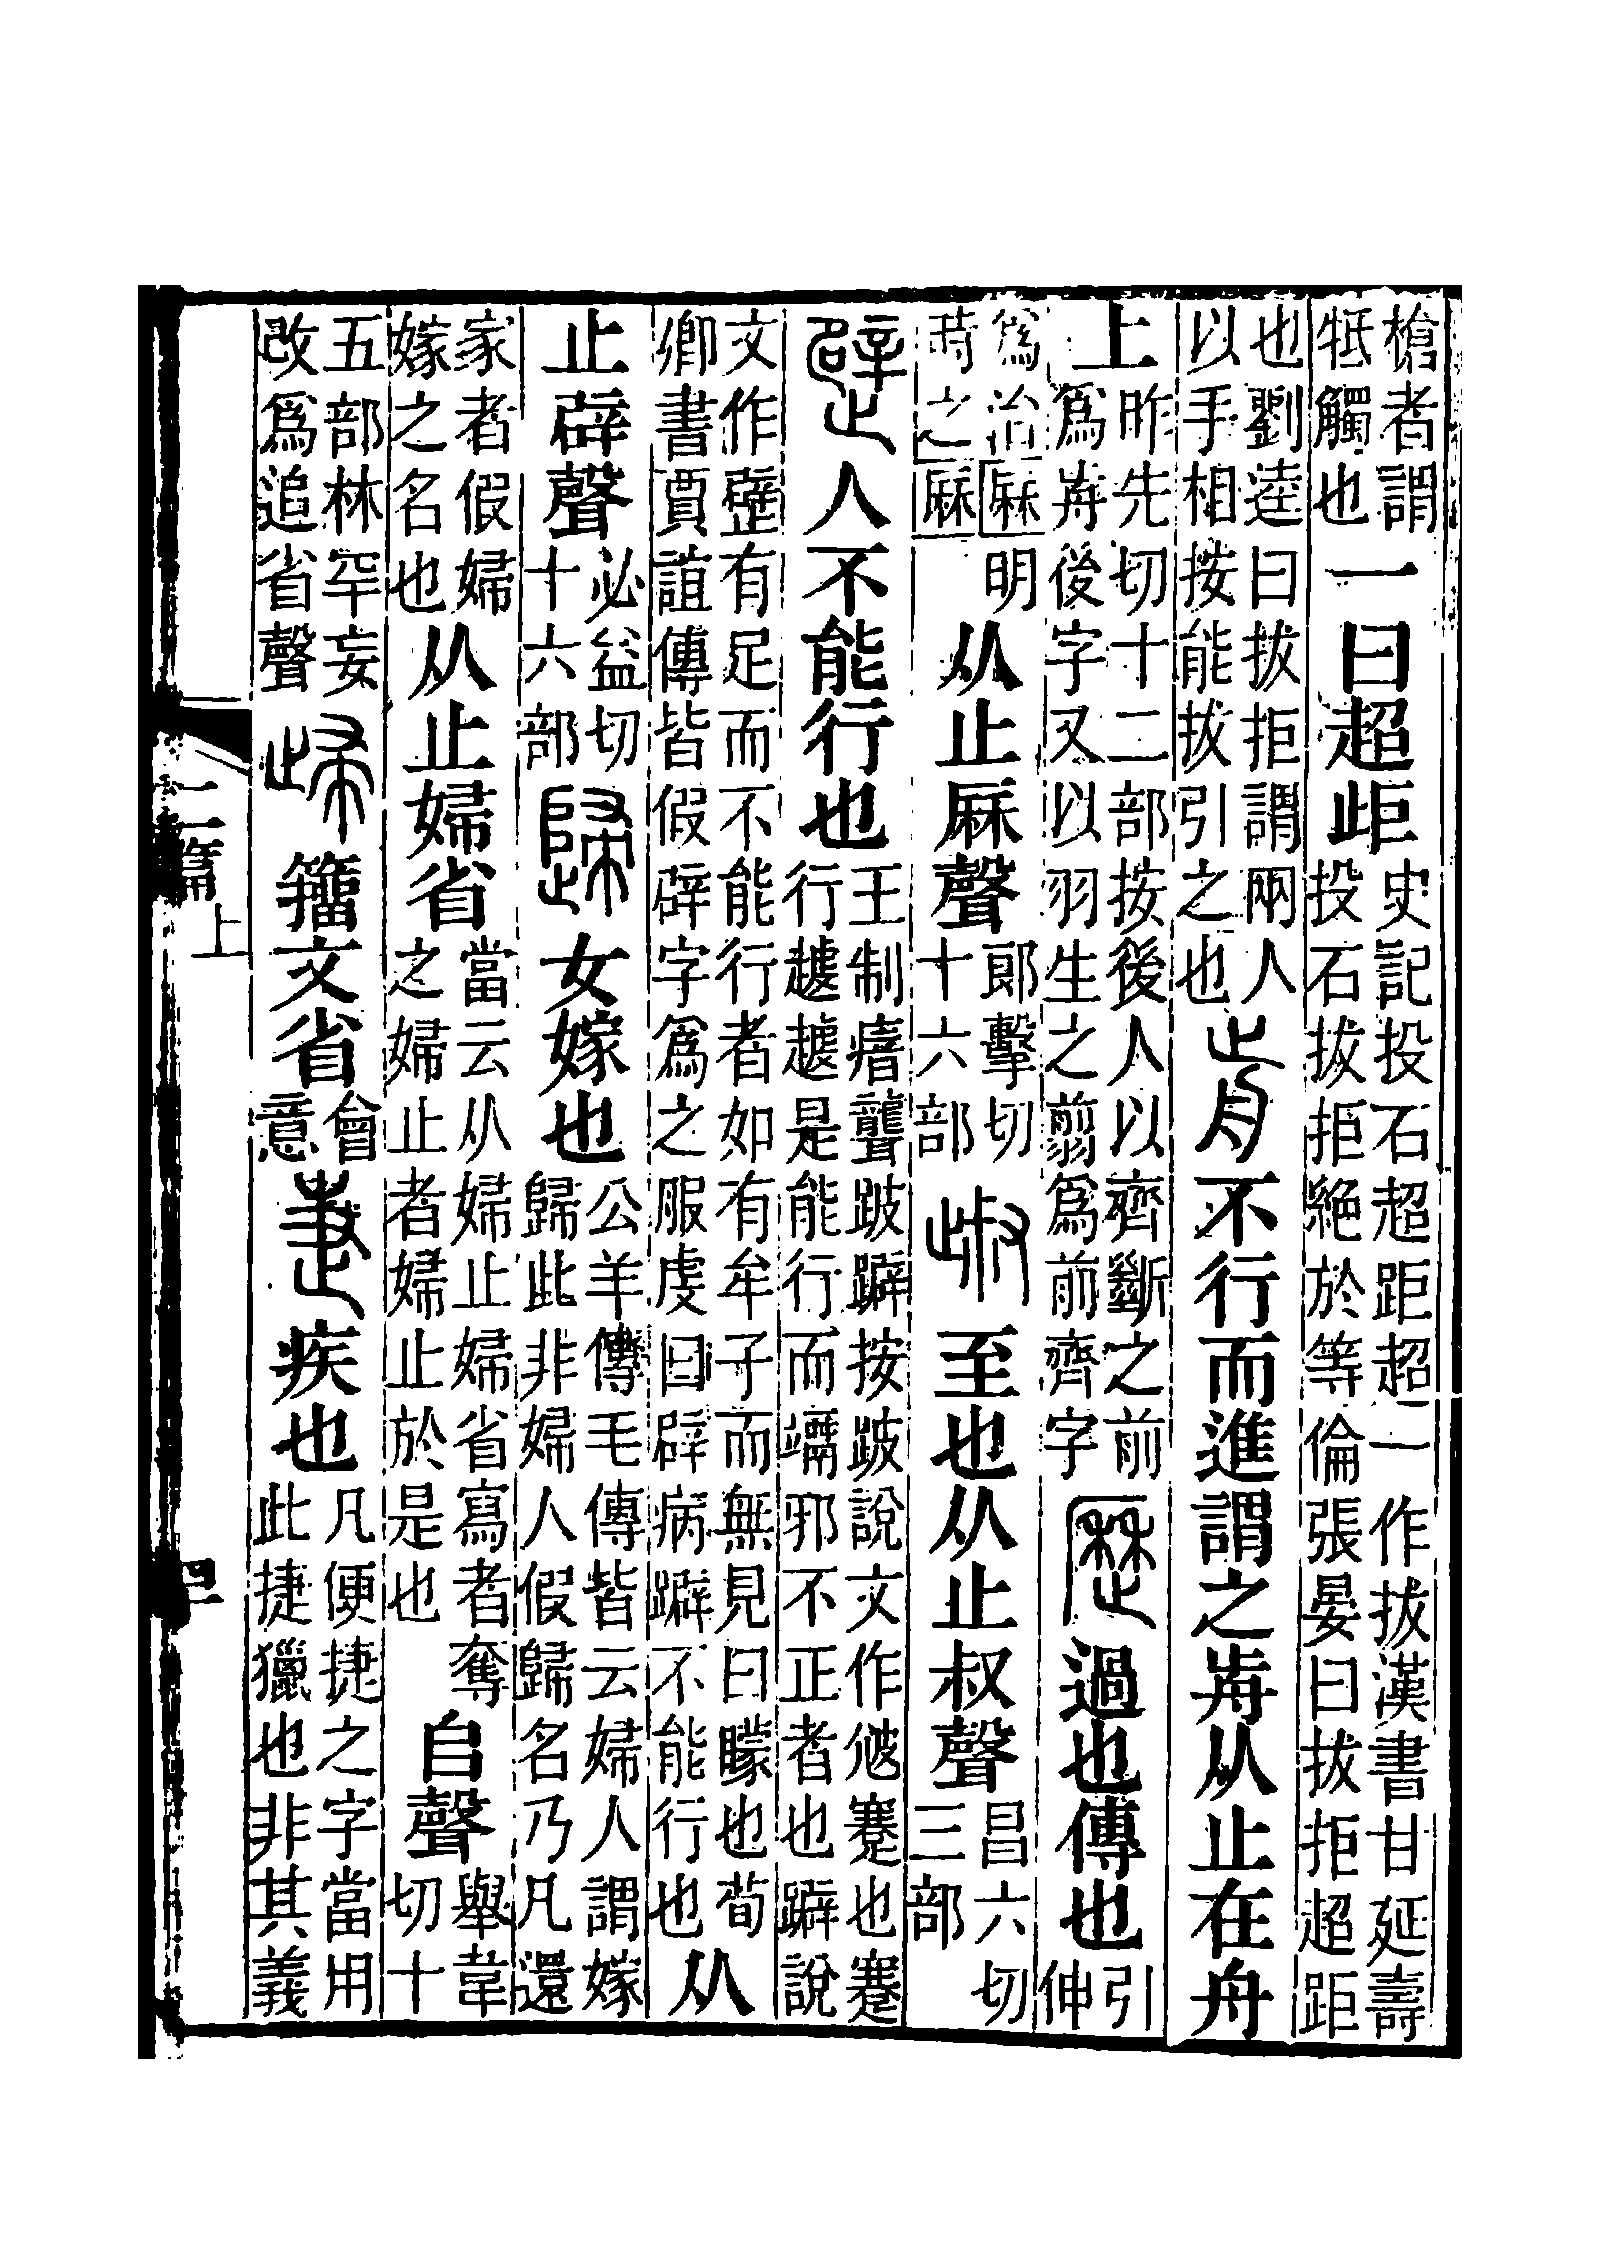 槍者謂
牴觸也
一曰超歫
史記投石超距超一作拔漢書甘延壽
投石拔拒絶於等倫張晏曰拔拒超距
也劉逵曰拔拒謂兩人
以手相按能拔引之也
歬不行而進謂之歬从止在舟
上
昨先切十二部按後人以齊斷之前
爲歬後字又以羽生之翦爲前齊字
歷過也傳也
引
伸
爲治厤明
時之厤
从止厤聲
郎擊切
十六部
至也从止叔聲
昌六切
三部
人不能行也
王制瘖聾跛躃按跛說文作㝿蹇也蹇
行越越是能行而邪不正者也躃說
文作躄有足而不能行者如有牟子而無見曰矇也荀
卿書賈誼傳皆假辟字爲之服虔曰辟病躃不能行也
从
止辟聲
必益切
十六部
歸女嫁也
公羊傳毛傳皆云婦人謂嫁
歸此非婦人假歸名乃凡還
家者假婦
嫁之名也
从止婦省
當云从婦止婦省寫者奪
之婦止者婦止於是也
𠂤聲
舉韋
切十
五部林罕妄
改爲追省聲
㱕籒文省
會
意
疌疾也
凡便捷之字當用
此捷獵也非其義
二篇上